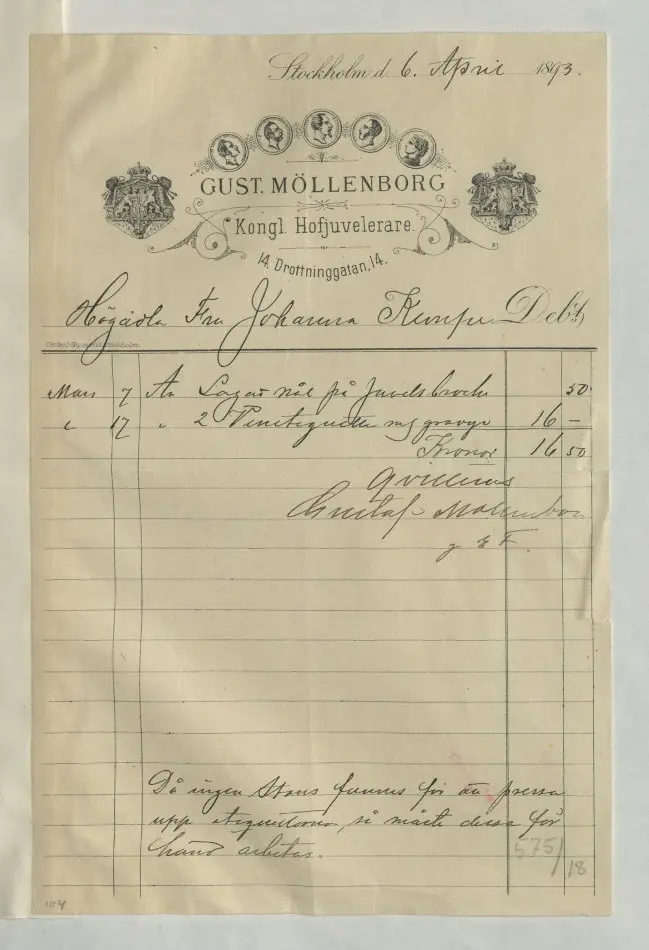 Stockholm d. 6. April 1893.
GUST. MÖLLENBORG
Kongl. Hofjuvelerare.
14. Drottninggatan, 14.
Högädla Fru Johanna Kempe Debt
Mars 7 An Lagat nål på Juvelsbroche 50
" 17 " 2 Vinetiquetter m/ gravyr 16 —
Kronor 16 50
Qvitteras
Gustaf Möllenborg
g E F.
Då ingen Stans funnes för att pressa
upp etiquetterna, så måste dessa för
hand arbetas.
575/
18
104